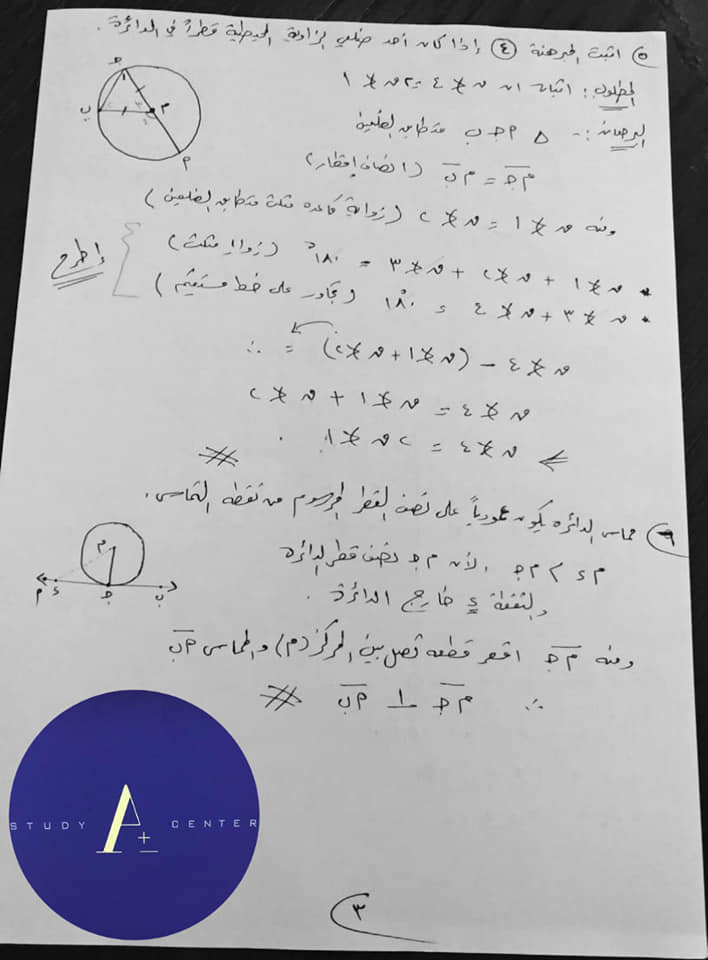 ٥) اثبت المبرهنة (٤) إذا كان أحد ضلعي الزاوية المحيطية قطراً في الدائرة.
المطلوب: اثبات ان ق∢٤ = ٢ق∢١
البرهان:- △ م جـ ب متطابق الضلعين
م جـ = م ب (انصاف اقطار)
ومنه ق∢١ = ق∢٢ (زوايا قاعدة مثلث متطابق الضلعين)
• ق∢١ + ق∢٢ + ق∢٣ = ١٨٠° (زوايا مثلث)
• ق∢٣ + ق∢٤ = ١٨٠° (تجاور على خط مستقيم)
إطرح
ق∢٤ - (ق∢١ + ق∢٢) = ٠
ق∢٤ = ق∢١ + ق∢٢
⇐ ق∢٤ = ٢ ق∢١ .
#
٦) مماس الدائرة يكون عمودياً على نصف القطر المرسوم من نقطة التماس.
م ء > م جـ ، لأن م جـ نصف قطر الدائرة
والنقطة ء خارج الدائرة .
ومنه م جـ اقصر قطعة تصل بين المركز (م) والمماس أب
∴ م جـ ⊥ أب #
STUDY A+ CENTER
٣